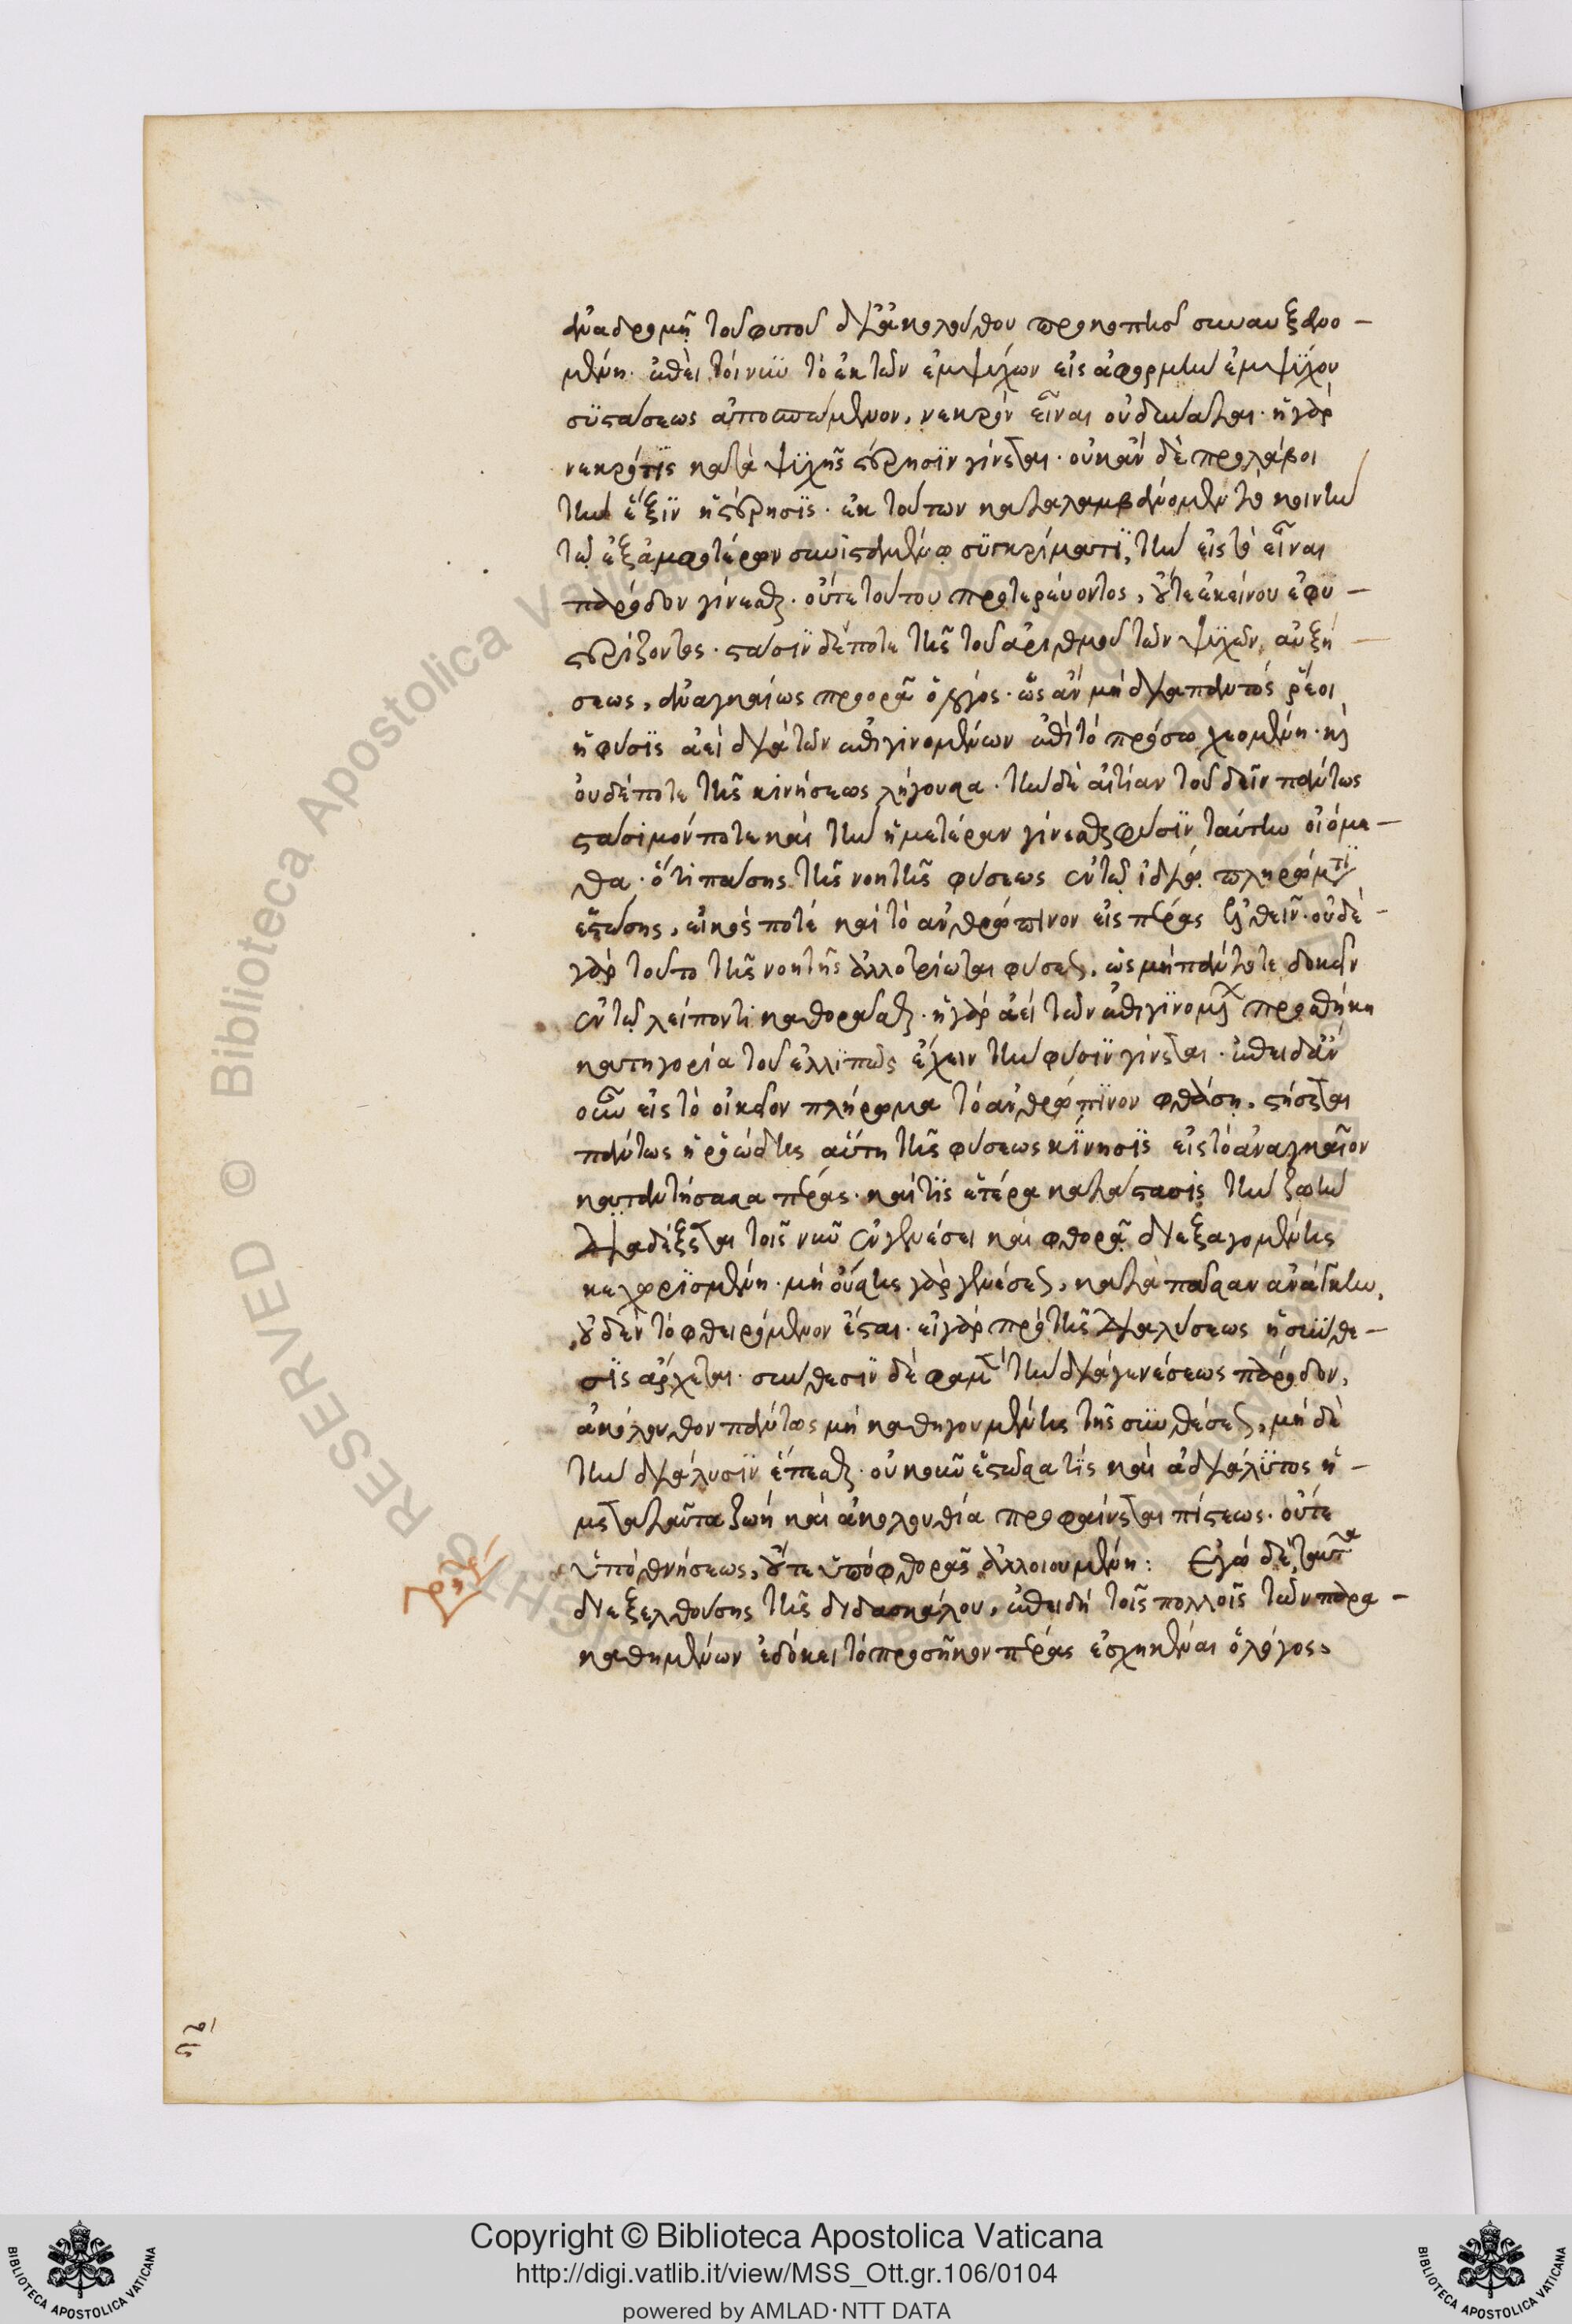 ἀναδρομῇ τοῦ φυτοῦ δι' ἀκολούθου προκοπῆς συναυξανο-
μένη· ἐπεὶ τοίνυν τὸ ἐκ τῶν ἐμψύχων εἰς ἀφορμὴν ἐμψύχου
συστάσεως ἀποσπώμενον, νεκρὸν εἶναι οὐ δύναται· ἡ γὰρ
νεκρότης κατὰ ψυχῆς στέρησιν γίνεται· οὐκ ἂν δὲ προλάβοι
τὴν ἕξιν ἡ στέρησις· ἐκ τούτων καταλαμβάνομεν τὸ κοινὴν
τῷ ἐξ ἀμφοτέρων συνισταμένῳ συγκρίματι, τὴν εἰς τὸ εἶναι
πάροδον γίνεσθαι· οὔτε τούτου προτερεύοντος, οὔτε ἐκείνου ἐφυ-
στερίζοντος· στάσιν δέ ποτε τῆς τοῦ ἀριθμοῦ τῶν ψυχῶν αὐξή-
σεως, ἀναγκαίως προορᾷ ὁ λόγος· ὡς ἂν μὴ διαπαντὸς ῥέοι
ἡ φύσις ἀεὶ διὰ τῶν ἐπιγινομένων ἐπὶ τὸ πρόσω χεομένη· καὶ
οὐδέποτε τῆς κινήσεως λήγουσα· τὴν δὲ αἰτίαν τοῦ δεῖν πάντως
στάσιμόν ποτε καὶ τὴν ἡμετέραν γίνεσθαι φύσιν ταύτην οἰόμε-
θα· ὅτι πάσης τῆς νοητῆς φύσεως ἐν τῷ ἰδίῳ πληρώματι
ἑστώσης, εἰκός ποτε καὶ τὸ ἀνθρώπινον εἰς πέρας ἐλθεῖν· οὐδὲ
γὰρ τοῦτο τῆς νοητῆς ἀλλοτρίωται φύσεως, ὡς μὴ πάντοτε δοκεῖν
ἐν τῷ λείποντι καθορᾶσθαι· ἡ γὰρ ἀεὶ τῶν ἐπιγινομένων προσθήκη
κατηγορία τοῦ ἐλλιπῶς ἔχειν τὴν φύσιν γίνεται· ἐπειδὰν
οὖν εἰς τὸ οἰκεῖον πλήρωμα τὸ ἀνθρώπινον φθάσῃ, στήσεται
πάντως ἡ ῥοώδης αὕτη τῆς φύσεως κίνησις εἰς τὸ ἀναγκαῖον
καταντήσασα πέρας· καί τις ἑτέρα κατάστασις τὴν ζωὴν
διαδέξεται τοῖς νῦν ἐν γενέσει καὶ φθορᾷ διεξαγομένης
κεχωρισμένη· μὴ οὔσης γὰρ γενέσεως, κατὰ πᾶσαν ἀνάγκην,
οὐδὲν τὸ φθειρόμενον ἔσται· εἰ γὰρ πρὸ τῆς διαλύσεως ἡ σύνθε-
σις ἄρχεται· σύνθεσιν δέ φαμεν τὴν διὰ γενέσεως πάροδον,
ἀκόλουθον πάντως μὴ καθηγουμένης τῆς συνθέσεως, μὴ δὲ
τὴν διάλυσιν ἕπεσθαι· οὐκοῦν ἑστῶσά τις καὶ ἀδιάλυτος ἡ
μετὰ ταῦτα ζωὴ καὶ ἀκολουθία προφαίνεται πίστεως· οὔτε
ὑπὸ θνήσεως, οὔτε ὑπὸ φθορᾶς ἀλλοιουμένη: Ἐγὼ δὲ ταῦτα
διεξελθούσης τῆς διδασκάλου, ἐπειδὴ τοῖς πολλοῖς τῶν παρα-
καθημένων ἐδόκει τὸ προσῆκον πέρας ἐσχηκέναι ὁ λόγος,